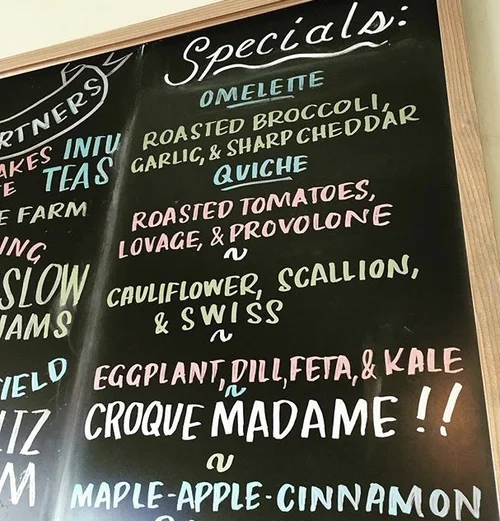 Specials:
OMELETTE
ROASTED BROCCOLI,
GARLIC, & SHARP CHEDDAR
QUICHE
ROASTED TOMATOES,
LOVAGE, & PROVOLONE
~
CAULIFLOWER, SCALLION,
& SWISS
~
EGGPLANT, DILL, FETA, & KALE
~
CROQUE MADAME!!
~
MAPLE-APPLE-CINNAMON
RTNERS
AKES INTU
E TEAS
E FARM
ING
SLOW
JAMS
IELD
LTZ
M